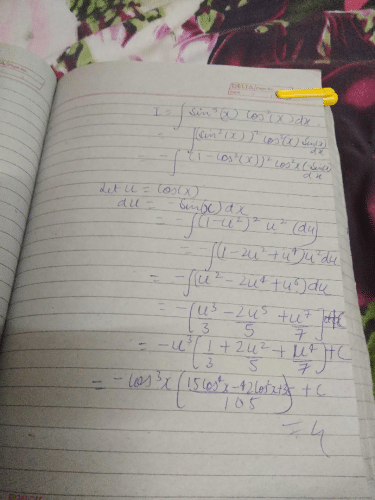 I = ∫ sin⁵(x) cos²(x) dx
= ∫ (sin²(x))² cos²(x) sin(x) dx
= ∫ (1 - cos²(x))² cos²x (sin(x) dx
Let u = cos(x)
du = - sin(x) dx
= - ∫ (1-u²)² u² (du)
= - ∫ (1 - 2u² + u⁴) u² du
= - ∫ (u² - 2u⁴ + u⁶) du
= - [u³/3 - 2u⁵/5 + u⁷/7] + C
= - u³ [1/3 + 2u²/5 + u⁴/7] + C
= - cos³x (15cos⁴x - 42cos²x + 35 / 105) + C